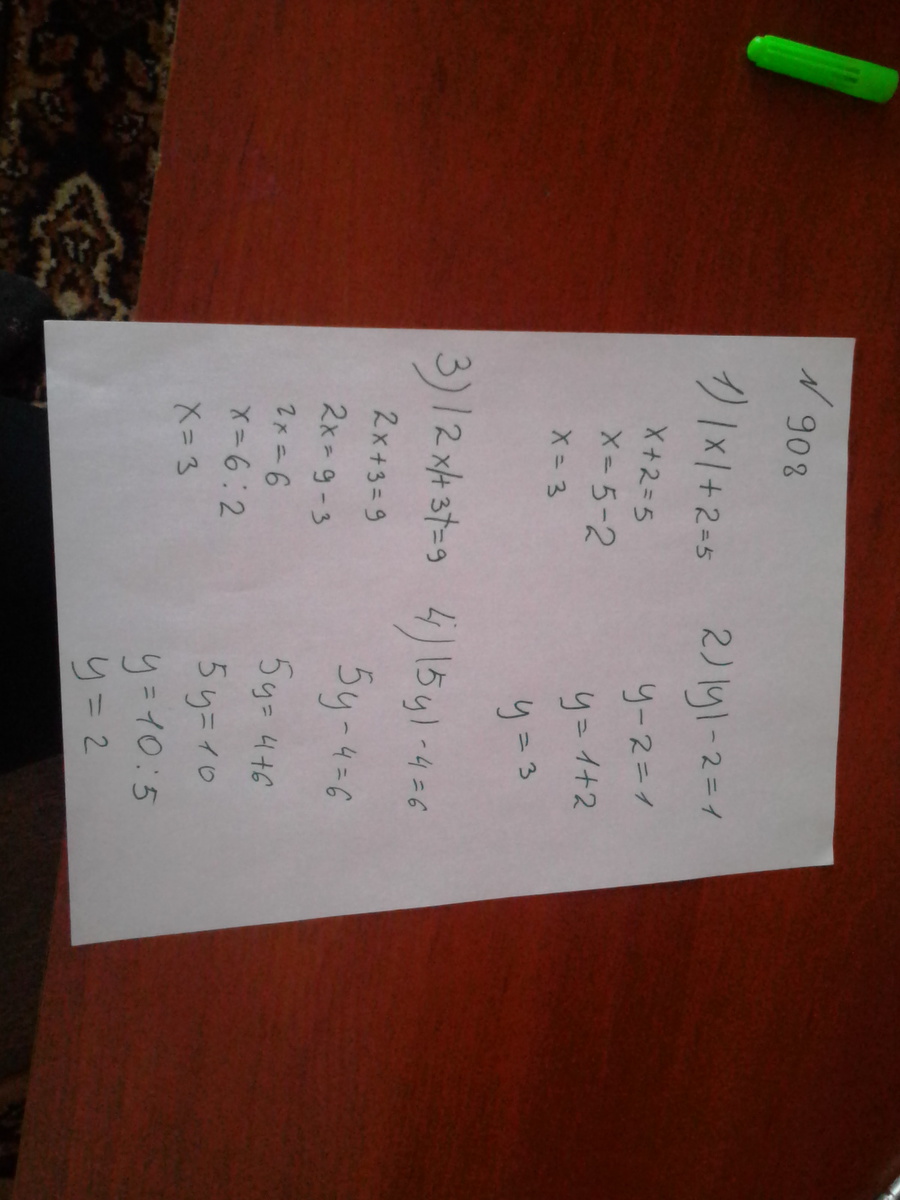 N 908
1) |x| + 2 = 5
x + 2 = 5
x = 5 - 2
x = 3
2) |y| - 2 = 1
y - 2 = 1
y = 1 + 2
y = 3
3) |2x|+3|=9
2x+3=9
2x = 9 - 3
2x = 6
x = 6 : 2
x = 3
4) |5y| - 4 = 6
5y - 4 = 6
5y = 4+6
5y = 10
y = 10 : 5
y = 2